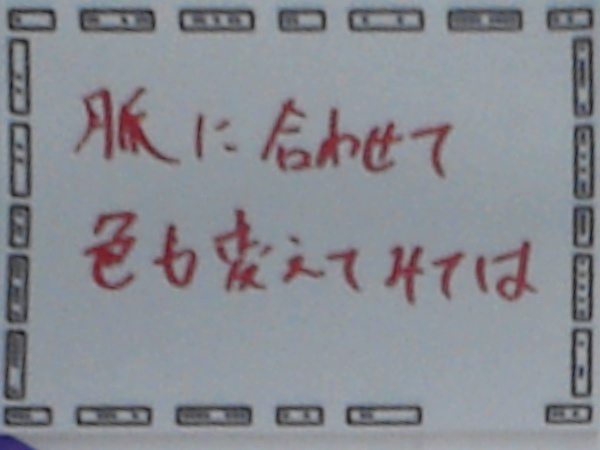 脈に合わせて
色も変えてみては